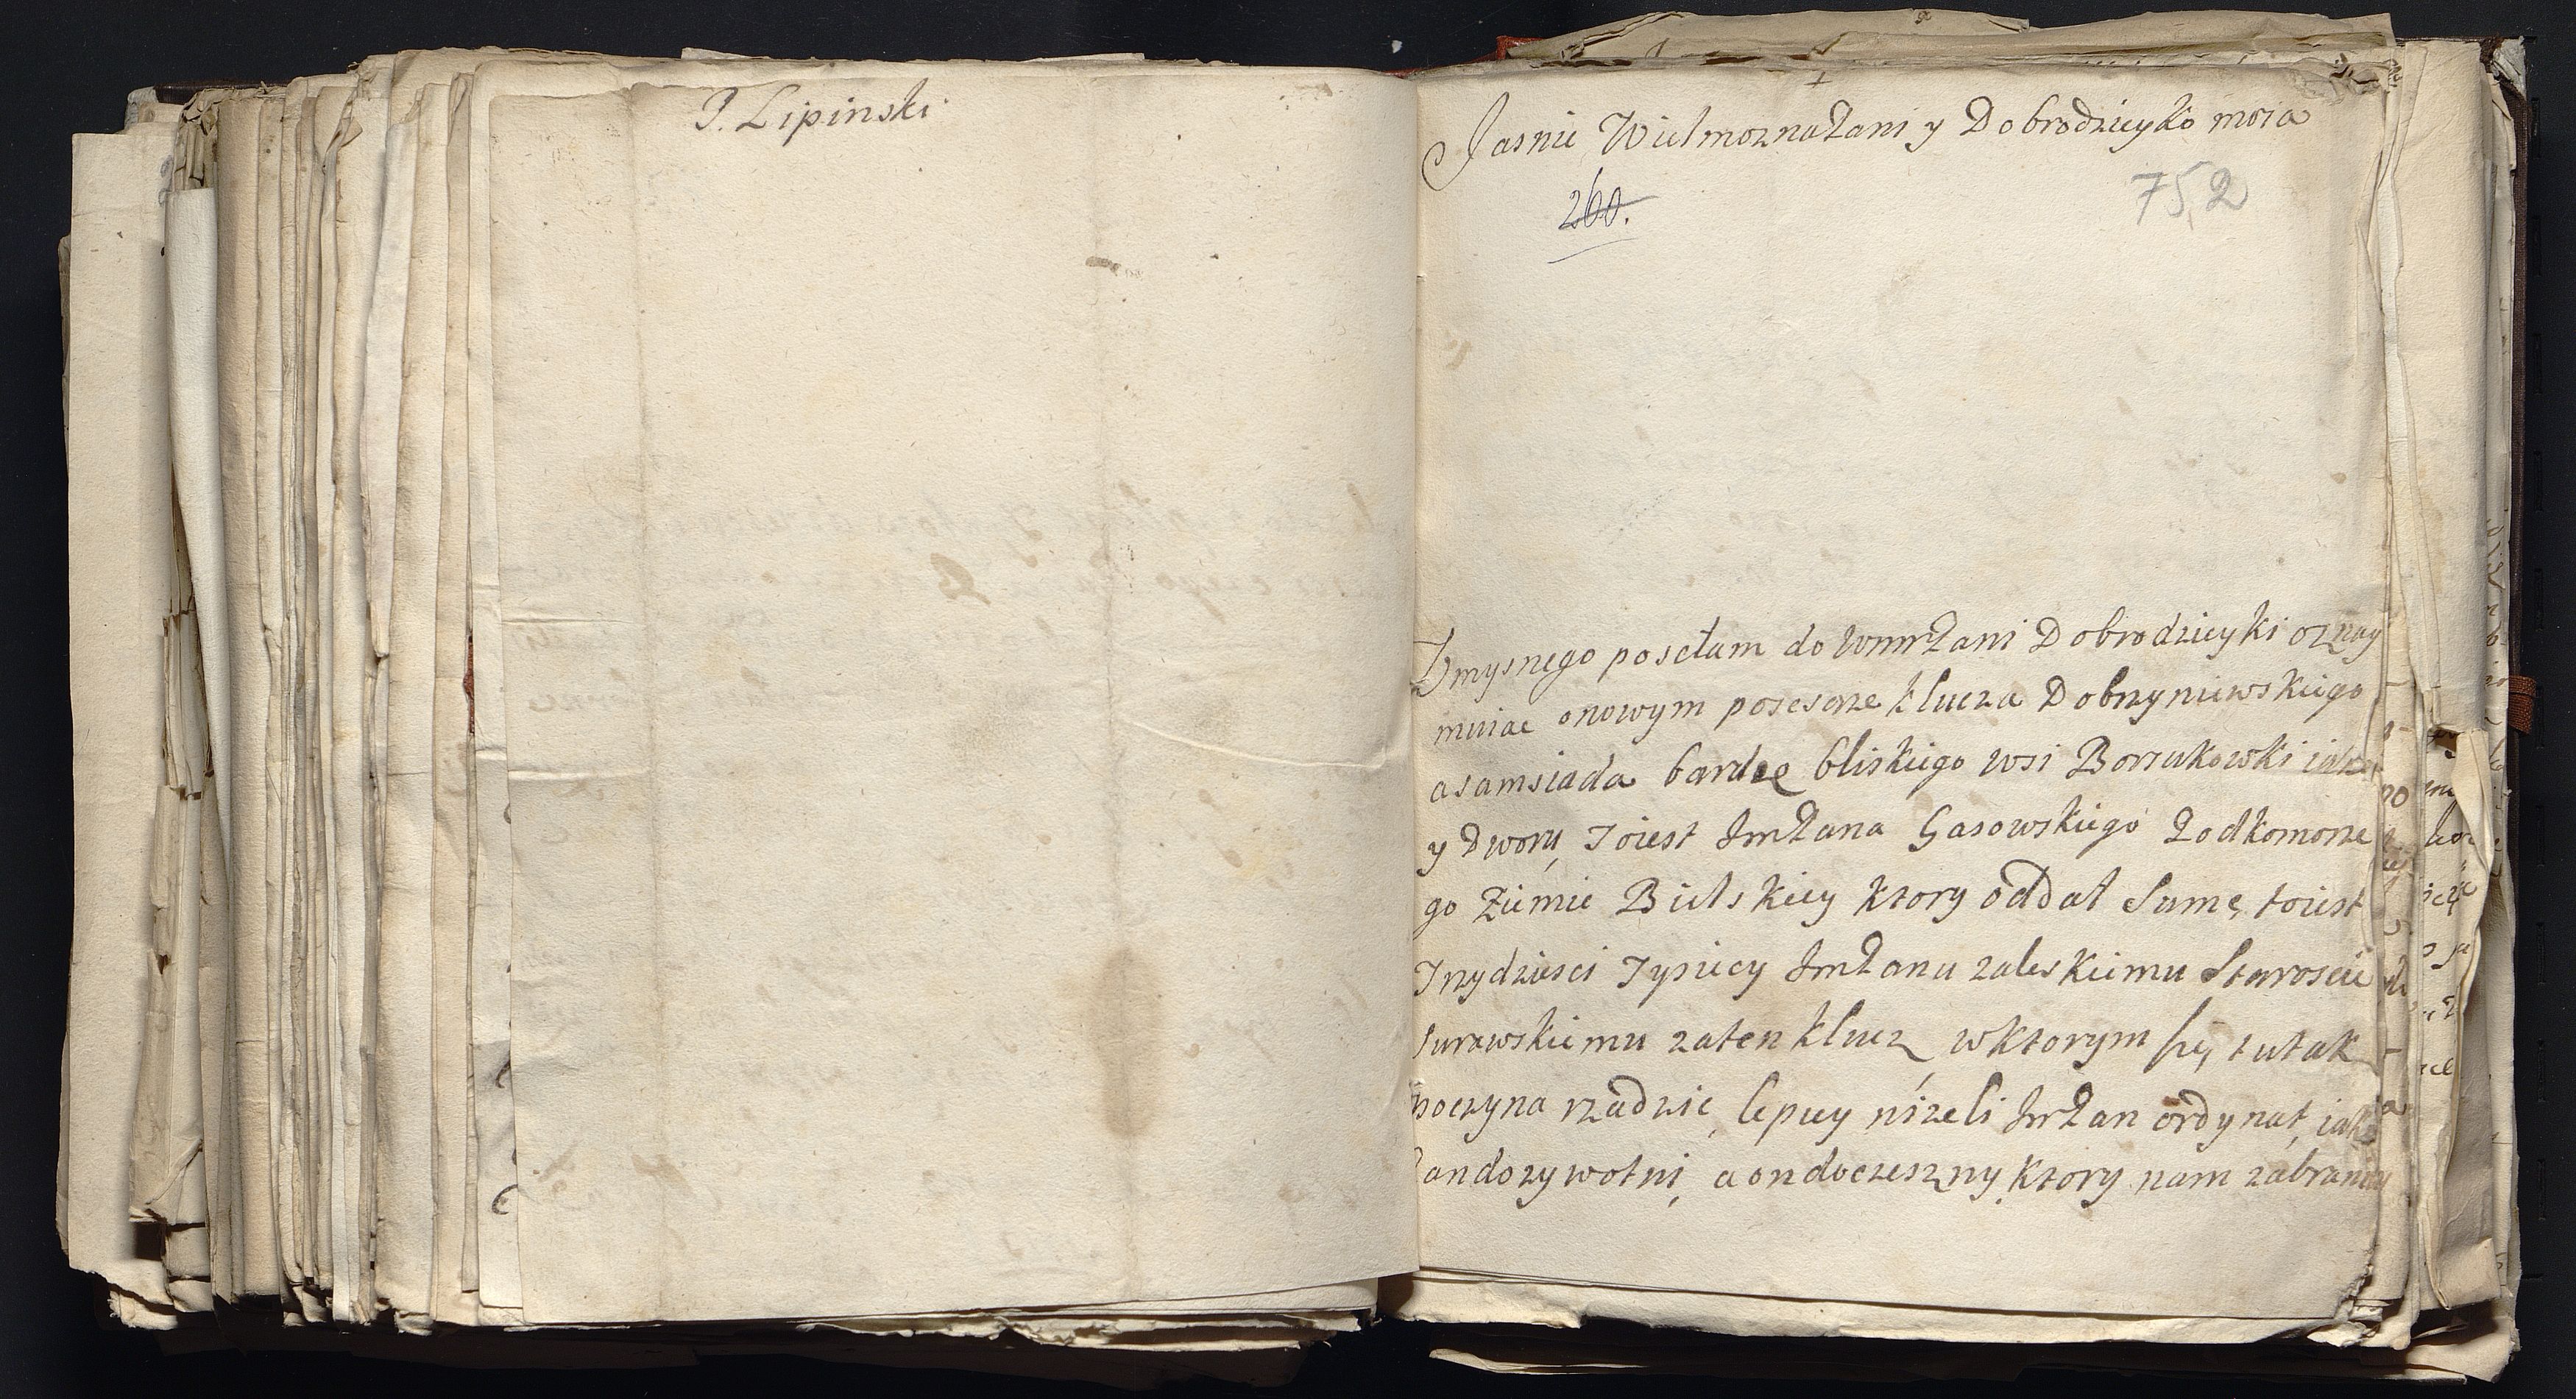 P. Lipinski
Jasnie Wielmozna Pani y Dobrodzieyko moia
260.
75,2
Vmysnego posełam do WmmPani Dobrodzieyki oznay
muiac o nowym posesorze klucza Dobrzyniewskiego
a samsiada bardzę bliskiego wsi Borsukowki iako
y Dworu, To iest JmPana Gasowskiego Podkomorze
go Ziemie Bielskiey ktory oddał Sumę, to iest
Trydziesci Tysiecy JmPanu zaleskiemu Staroscie
surawskiemu za ten klucz, w ktorym się, tu tak
poczyna rządzic, lepiey niżeli JmPan ordynat, iako
Pan dozywotni, a on doczeszny, ktory nam zabrania